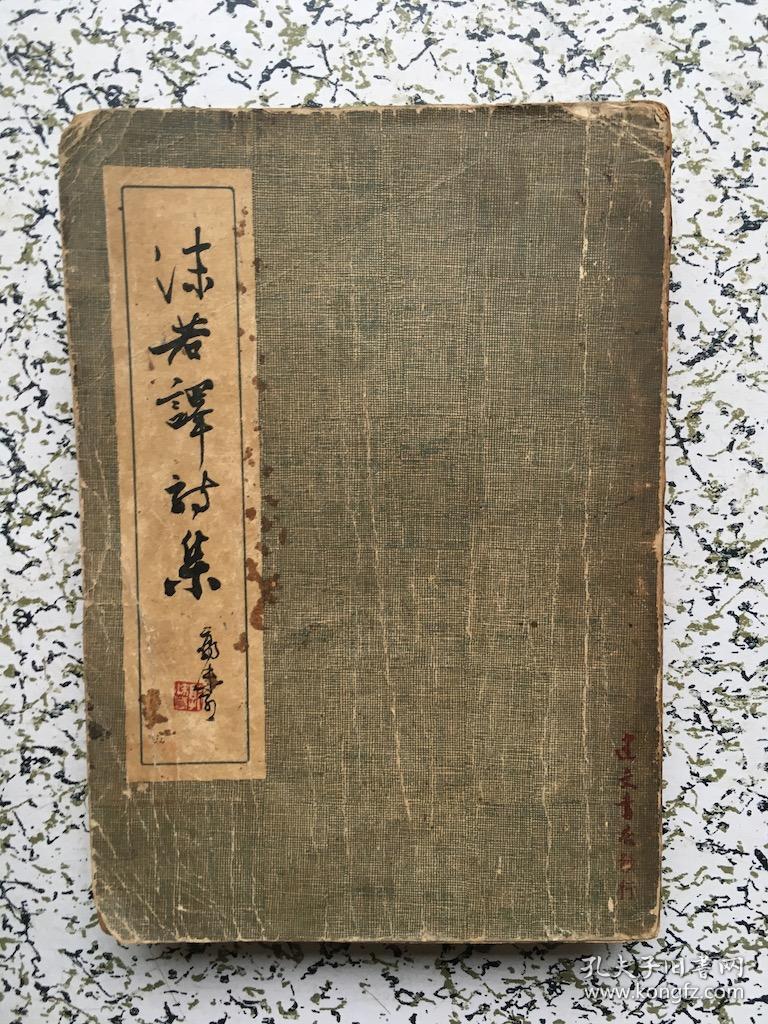 沫若譯詩集
郭沫若
建文書店刊行
孔夫子旧书网
www.kongfz.com